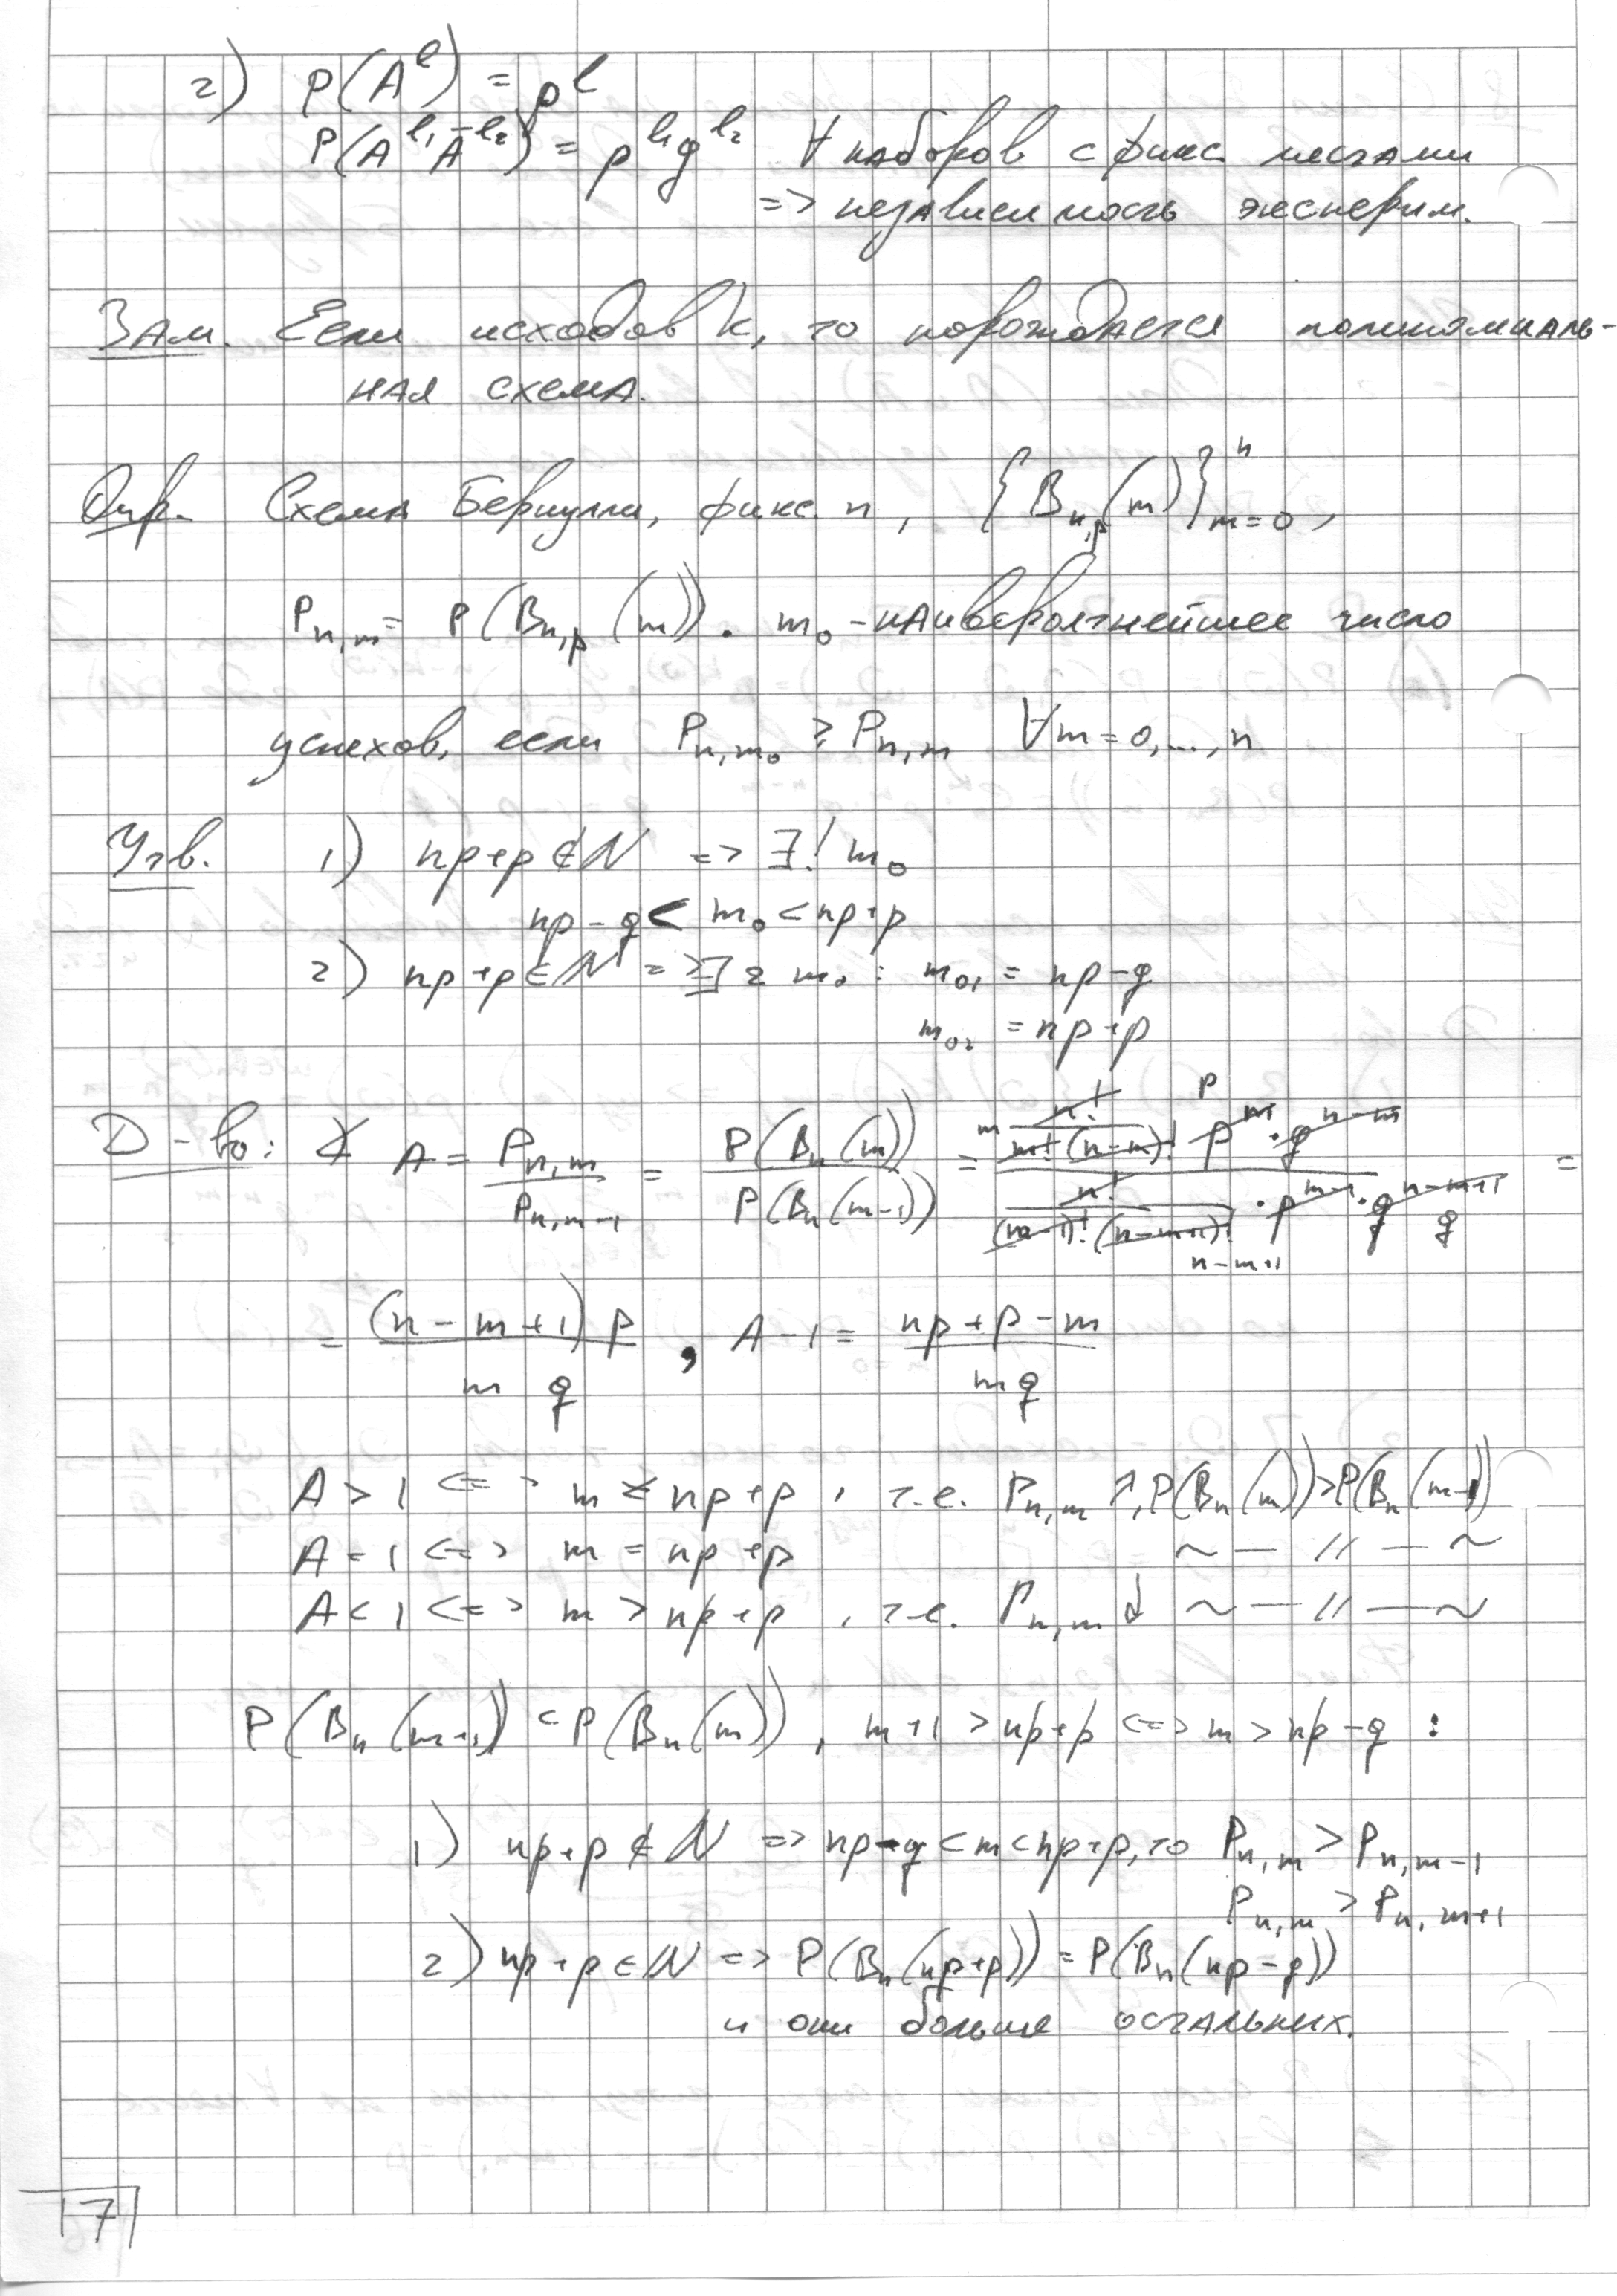 2) P(A^l) = p^l
P(A^{l₁} Ā^{l₂}) = p^{l₁} q^{l₂} ∀ наборов с фикс. местами
=> независимость эксперим.
Зам. Если исходов k, то порождается полиномиаль-
ная схема.
Опр. Схема Бернулли, фикс. n, {B_{n,p}(m)}_{m=0}^{n},
P_{n,m} = P(B_{n,p}(m)). m₀ - наивероятнейшее число
успехов, если P_{n,m₀} ≥ P_{n,m} ∀m = 0,...,n
Утв. 1) np+p ∉ N => ∃! m₀
np - q < m₀ < np+p
2) np+p ∈ N => ∃ 2 m₀ : m₀₁ = np - q
m₀₂ = np+p
Д-во: A = P_{n,m} / P_{n,m-1} = P(B_n(m)) / P(B_n(m-1)) = (n! / (m!(n-m)!) p^m · q^{n-m}) / (n! / ((m-1)!(n-m+1)!) · p^{m-1} · q^{n-m+1}) =
= (n-m+1)p / mq , A - 1 = (np+p-m) / mq
A > 1 <=> m < np+p , т.е. P_{n,m} ↑, P(B_n(m)) > P(B_n(m-1))
A = 1 <=> m = np+p ~ — // — ~
A < 1 <=> m > np+p , т.е. P_{n,m} ↓ ~ — // — ~
P(B_n(m+1)) < P(B_n(m)), m+1 > np+p <=> m > np - q :
1) np+p ∉ N => np-q < m < np+p, то P_{n,m} > P_{n,m-1}
P_{n,m} > P_{n,m+1}
2) np+p ∈ N => P(B_n(np+p)) = P(B_n(np-q))
и они больше остальных.
17